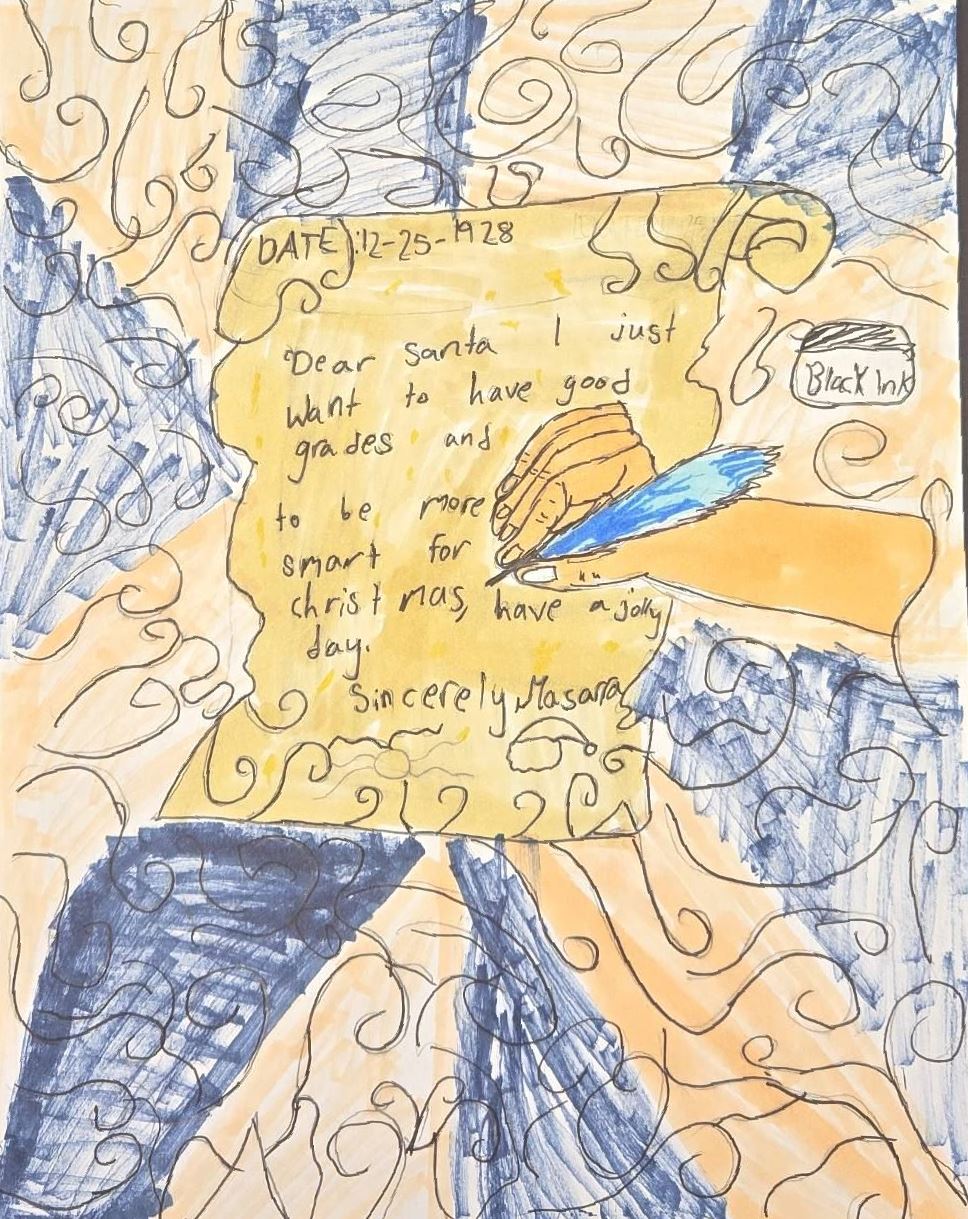 DATE):12-25-1928
Dear santa I just
want to have good
grades and
to be more
smart for
christmas, have a jolly
day.
Sincerely Masana
Black Ink